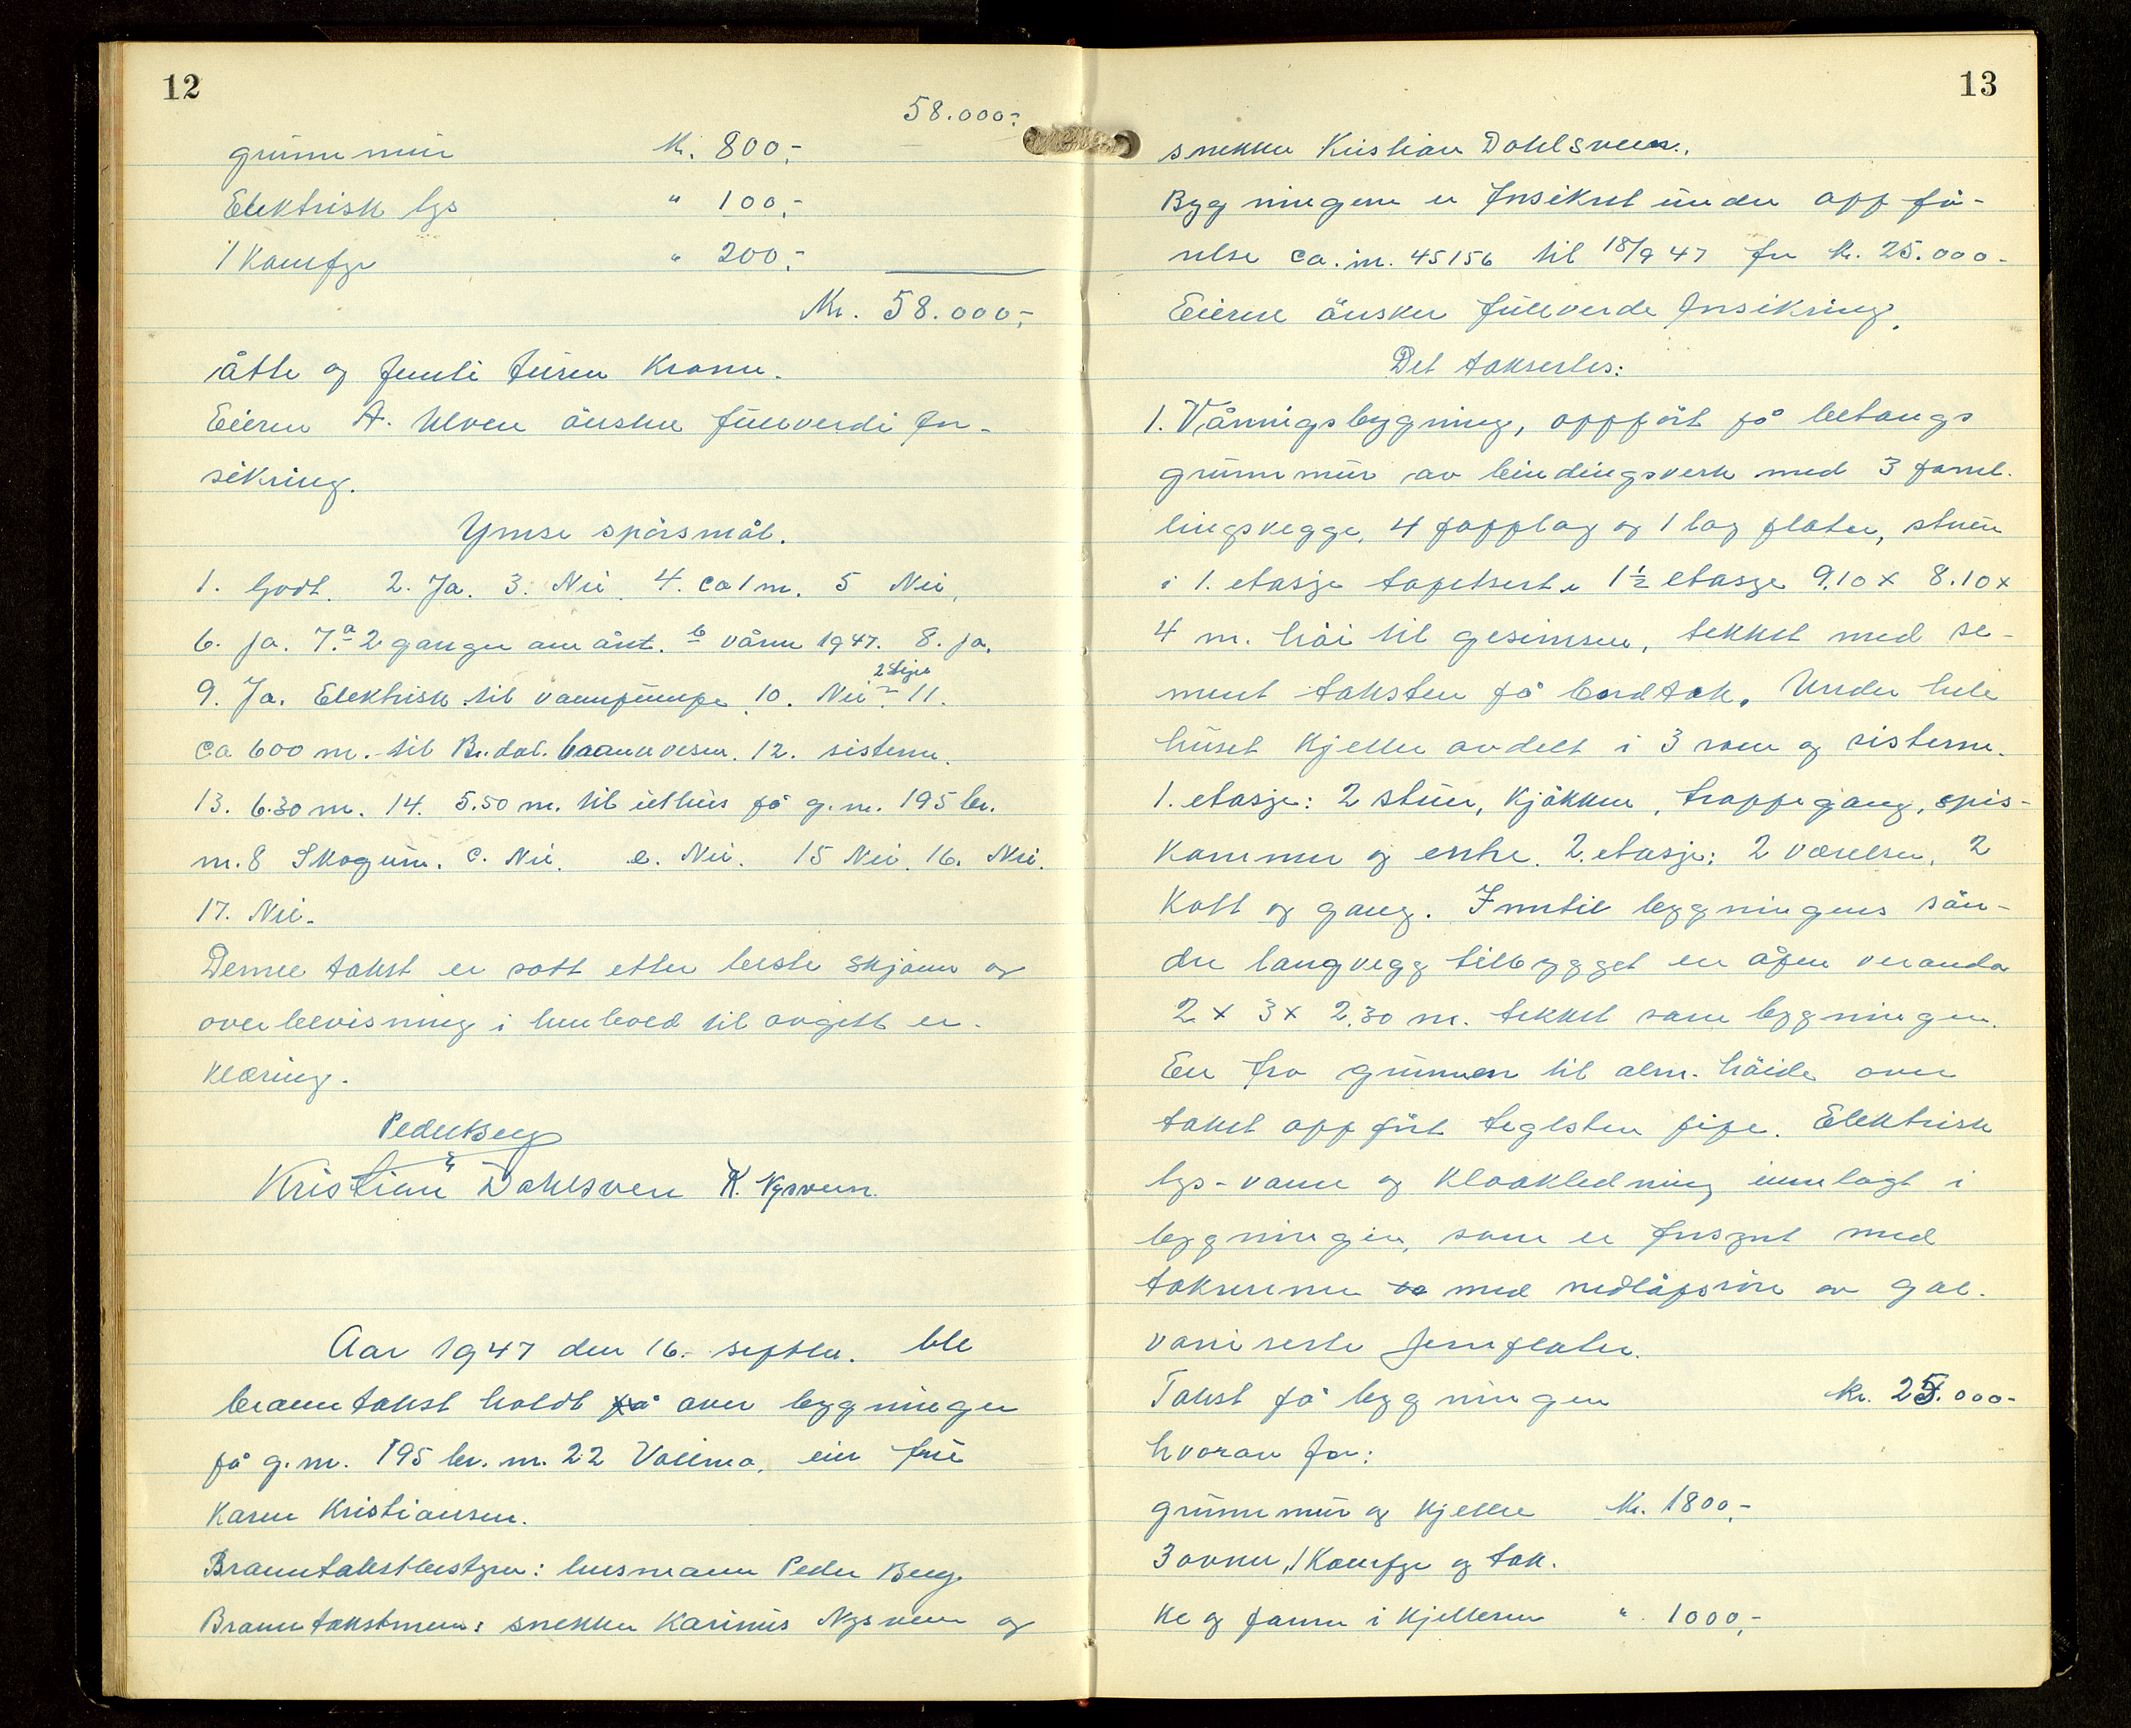 12
58.000:
grunnmur Kr. 800,-
Elektrisk lys " 100,-
1 Komfyr " 200,-
Kr. 58.000,-
åtte og femti tusen Kroner.
Eieren A. Ulven ønsker fullverdi for-
sikring.
Ymse spørsmål.
1. Godt. 2. Ja. 3. Nei. 4. ca 1 m. 5 Nei.
6. Ja. 7.a 2 ganger om året. b våren 1947. 8. Ja.
9. Ja. Elektrisk til vannpumpe. 10. Nei. 11.
ca 600 m. til Br.dal. brannvesen. 12. sisterne.
13. 6.30 m. 14. 5.50 m. til uthus på g.nr. 195 br.
nr. 8 Skogum. c. Nei. e. Nei. 15 Nei. 16. Nei.
17. Nei.
Denne takst er satt etter beste skjønn og
overbevisning i henhold til avgitt er-
klæring.
Peder Berg
Kristian Dahlsveen K. Nysveen.
Aar 1947 den 16. septbr. ble
branntakst holdt på over bygninger
på g.nr. 195 br.nr. 22 Vollmo, eier fru
Karen Kristiansen.
Branntakstbestyrer: husmann Peder Berg.
Branntakstmenn: snekker Karinius Nysveen og
13
snekker Kristian Dahlsveen.
Bygningen er forsikret under oppfø-
relse ca. nr. 45156 til 18/9 47 for kr. 25.000-
Eieren ønsker fullverde forsikring.
Det takserles:
1. Våningsbygning, oppført på betongs
grunnmur av bindingsverk med 3 panel-
lingsvegge, 4 papplag og 1 lag plater, stuen
i 1. etasje tapetsert. 1½ etasje 9.10 x 8.10 x
4 m. høi til gesimsen, tekket med se-
ment taksten på bordtak. Under hele
huset kjeller avdelt i 3 rom og sisterne.
1. etasje: 2 stuer, kjøkken, trappegang, spis-
kammer og entre. 2. etasje: 2 værelser, 2
kott og gang. Inntil bygningens søn-
dre langvegg tilbygget en åpen veranda
2 x 3 x 2.30 m. tekket som bygningen.
En fra grunnen til alm. høide over
taket oppført teglsten pipe. Elektrisk
lys-vann og kloakledning innlagt i
bygningen, som er forsynt med
takrenner med nedløpsrør av gal-
vaniserte jernplater.
Takst på bygningen kr. 25.000-
hvorav for:
grunnmur og kjeller Kr. 1800,-
3 ovner, 1 Komfyr og tak.
ke og panne i kjelleren " 1000,-